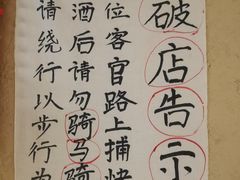 破店告示
位客官路上捕快
酒后请勿骑马骑
请绕行以步行为